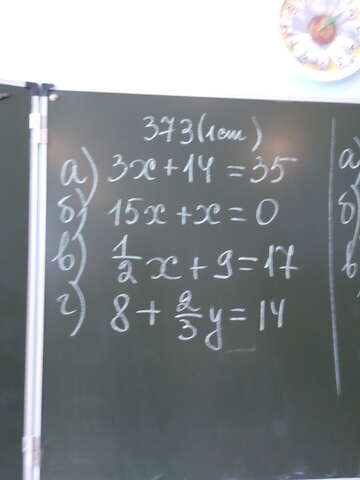 373(1ст)
а) 3x+14=35
б) 15x+x=0
в) 1/2 x+9=17
г) 8+2/3 y=14
а)
б)
в